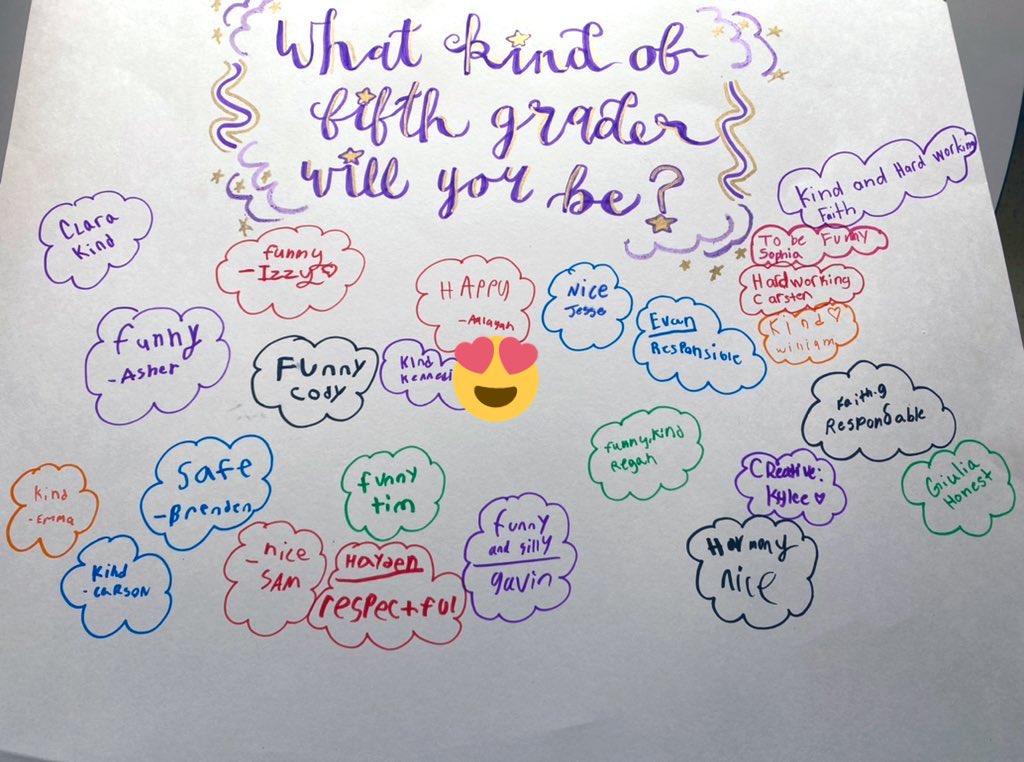 What kind of
fifth grader
will you be?
Kind and Hard working
Faith
Clara
Kind
funny
-Izzy
To be Funny
Sophia
HAPPY
-Aalayah
Nice
Jesse
Hardworking
Carsten
Evan
Responsible
Kind
William
funny
-Asher
Funny
Cody
Kind
Faith.g
Respondable
funny, kind
Regan
Safe
-Brenden
funny
tim
Creative:
Kylee
Giulia
Honest
Kind
-Emma
funny
and silly
gavin
-nice
SAM
Hayden
respectful
Harmony
nice
Kind
-CARSON